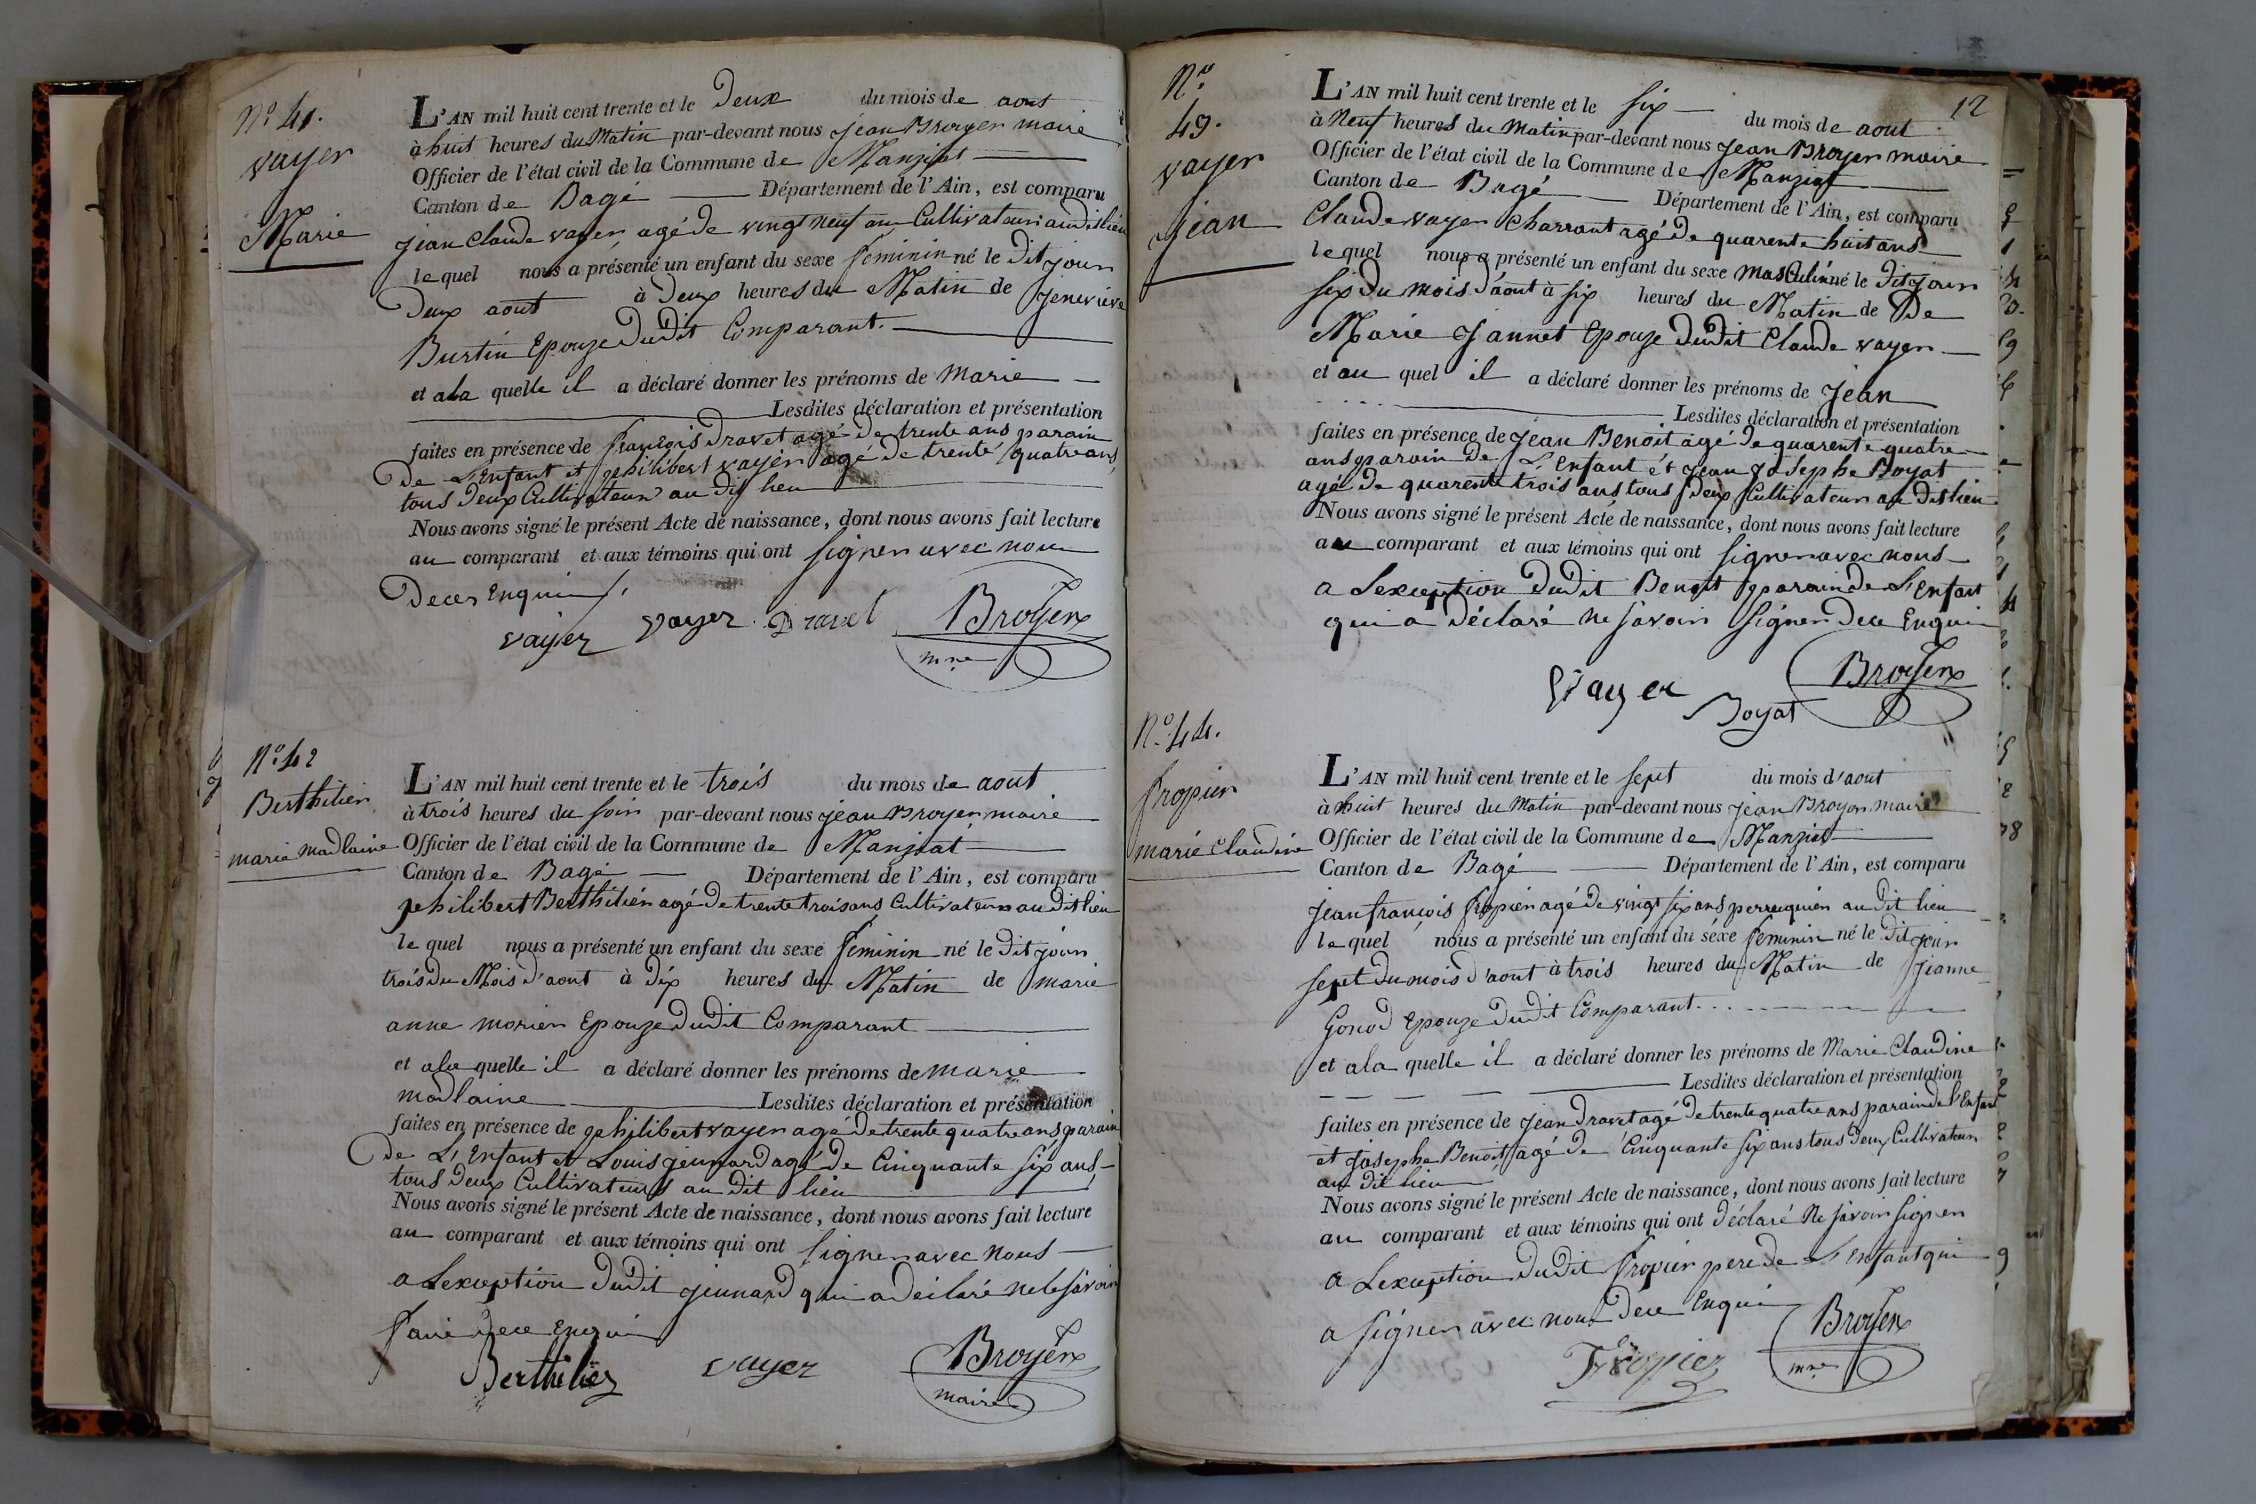 N.º 41.
vayer
Marie
L'AN mil huit cent trente et le Deux du mois de aout
à huit heures du Matin par-devant nous jean Broyer maire
Officier de l'état civil de la Commune de Manziat
Canton de Bagé Département de l'Ain, est comparu
jean Claude vayer, agé de vingt neuf ans Cultivateur audit lieu
le quel nous a présenté un enfant du sexe feminin né le Dit jour
Deux aout à Deux heures du Matin de jenevieve
Burtin Epouze Dudit Comparant.
et ala quelle il a déclaré donner les prénoms de Marie
Lesdites déclaration et présentation
faites en présence de francois Dravet agé de trente ans parain
De L'Enfant et philibert vayer agé De trente quatre ans
tous Deux Cultivateur au dit lieu
Nous avons signé le présent Acte de naissance, dont nous avons fait lecture
au comparant et aux témoins qui ont signer avec nous
Dece Enqui
vayer vayer Dravet Broyer
mre
N.º 42
Berthilier
marie madlaine
L'AN mil huit cent trente et le trois du mois de aout
à trois heures du soir par-devant nous jean Broyer maire
Officier de l'état civil de la Commune de Manziat
Canton de Bagé Département de l'Ain, est comparu
philibert Berthilier agé De trente trois ans Cultivateur au Dit lieu
le quel nous a présenté un enfant du sexe feminin né le Dit jour
trois du Mois d'aout à Dix heures du Matin de marie
anne morier Epouze Dudit Comparant
et ala quelle il a déclaré donner les prénoms de marie
madlaine Lesdites déclaration et présentation
faites en présence de philibert vayer agé De trente quatre ans parain
De L'Enfant et Louis jeunard agé De Cinquante six ans
tous Deux Cultivateurs au Dit lieu
Nous avons signé le présent Acte de naissance, dont nous avons fait lecture
au comparant et aux témoins qui ont signer avec nous
a Lexception Dudit jeunard qui a Déclaré ne le savoir
faire Dece Enqui
Berthilier vayer Broyer
maire
12
N.º
43.
vayer
jean
L'AN mil huit cent trente et le six du mois de aout
à Neuf heures du Matin par-devant nous jean Broyer maire
Officier de l'état civil de la Commune de Manziat
Canton de Bagé Département de l'Ain, est comparu
Claude vayer Charront agé De quarente huit ans
le quel nous a présenté un enfant du sexe masCulin né le Dit jour
six Du mois d'aout à six heures du Matin de De
Marie jannet Epouze Dudit Claude vayer
et au quel il a déclaré donner les prénoms de jean
Lesdites déclaration et présentation
faites en présence de jean Benoit agé De quarente quatre
ans parain De L'Enfant et jean josephe Boyat
agé De quarente trois ans tous Deux Cultivateur au Dit lieu
Nous avons signé le présent Acte de naissance, dont nous avons fait lecture
au comparant et aux témoins qui ont signer avec nous
a Lexception Dudit Benoit parain de L'Enfant
qui a Déclaré ne savoir signer Dece Enqui
Vayer Boyat Broyer
N.º 44.
fropier
marie Claudine
L'AN mil huit cent trente et le sept du mois d'aout
à huit heures du Matin par-devant nous jean Broyer maire
Officier de l'état civil de la Commune de Manziat
Canton de Bagé Département de l'Ain, est comparu
jean francois fropier agé De vingt six ans perruquier au dit lieu
le quel nous a présenté un enfant du sexe feminin né le Dit jour
sept Du mois d'aout à trois heures du Matin de jeanne
Gonod Epouze Dudit Comparant
et ala quelle il a déclaré donner les prénoms de Marie Claudine
Lesdites déclaration et présentation
faites en présence de jean Dravet agé De trente quatre ans parain de l'Enfant
et josephe Benoit agé De Cinquante six ans tous Deux Cultivateur
au Dit lieu
Nous avons signé le présent Acte de naissance, dont nous avons fait lecture
au comparant et aux témoins qui ont déclaré Ne savoir signer
a Lexception Dudit fropier pere de L'Enfant qui
a signer avec nous Dece Enqui
Fropier Broyer
mre